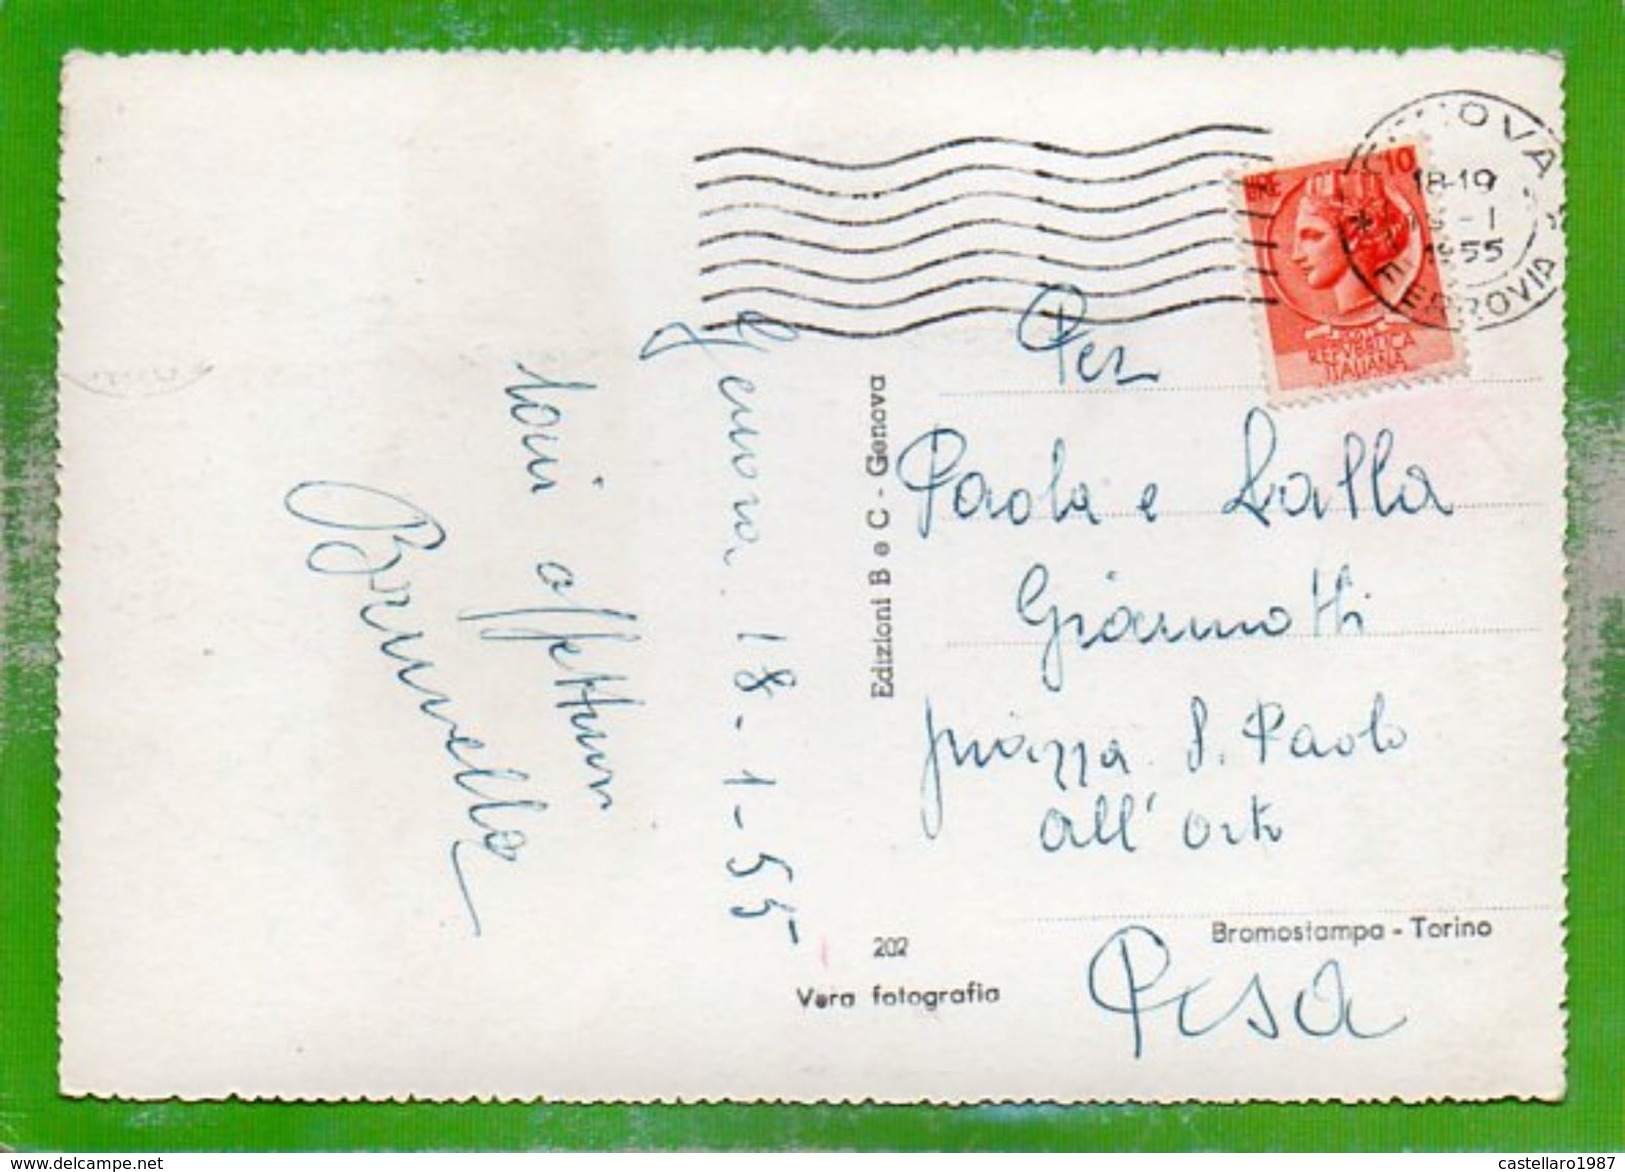 Genova 18-1-55
affettuosi
Brunella
Edizioni B e C - Genova
202
Vera fotografia
OVA
18-19
- 1
1955
FERROVIA
LIRE 10
POSTE
REPVBBLICA
ITALIANA
Per
Paola e
Giannotti
piazza S. Paolo
all'orto
Bromostampa - Torino
Pisa
delcampe.net
castellaro1987